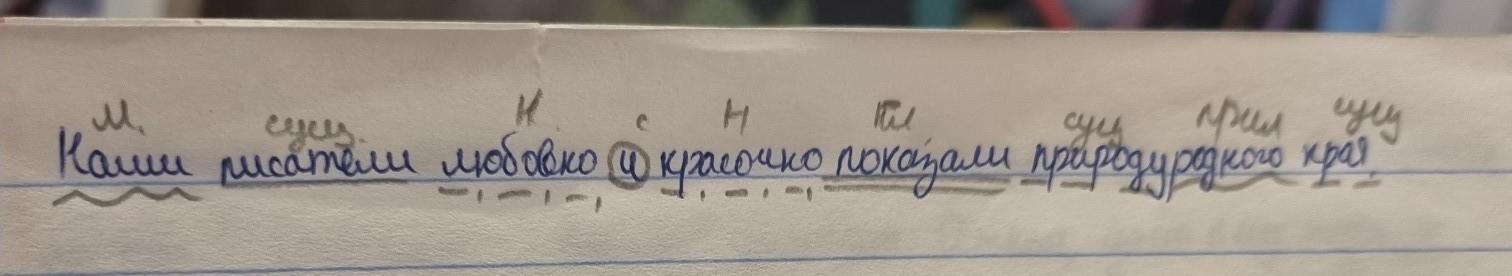 М. сущ. Н. с Н гл сущ прил сущ
Наши писатели любовно и красочно показали природу родного края.